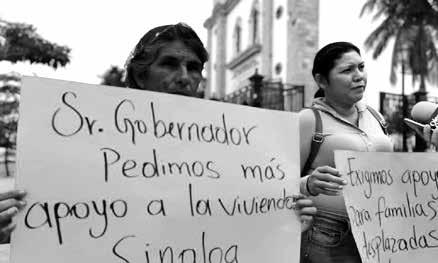 Sr. Gobernador
Pedimos más
apoyo a la vivienda
Sinaloa
Exigimos apoy
para familias
desplazadas